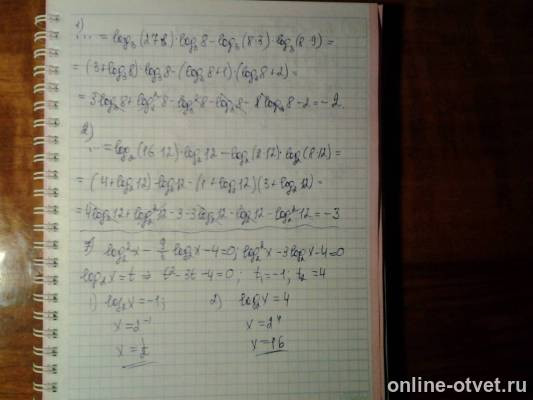 1)
... = log₃(27·8)·log₃8 − log₃(8·3)·log₃(8·9) =
= (3+log₃8)·log₃8 − (log₃8+1)·(log₃8+2) =
= 3log₃8 + log₃²8 − log₃²8 − log₃8 − 2log₃8 − 2 = −2.
2)
... = log₂(16·12)·log₂12 − log₂(2·12)·log₂(8·12) =
= (4+log₂12)·log₂12 − (1+log₂12)(3+log₂12) =
= 4log₂12 + log₂²12 − 3 − 3log₂12 − log₂12 − log₂²12 = −3
log₂²x − log₂x − 4 = 0; log₂²x − 3log₂x − 4 = 0
log₂x = t ⇒ t² − 3t − 4 = 0; t₁ = −1; t₂ = 4
1) log₂x = −1; 2) log₂x = 4
x = 2⁻¹ x = 2⁴
x = ½ x = 16
online-otvet.ru